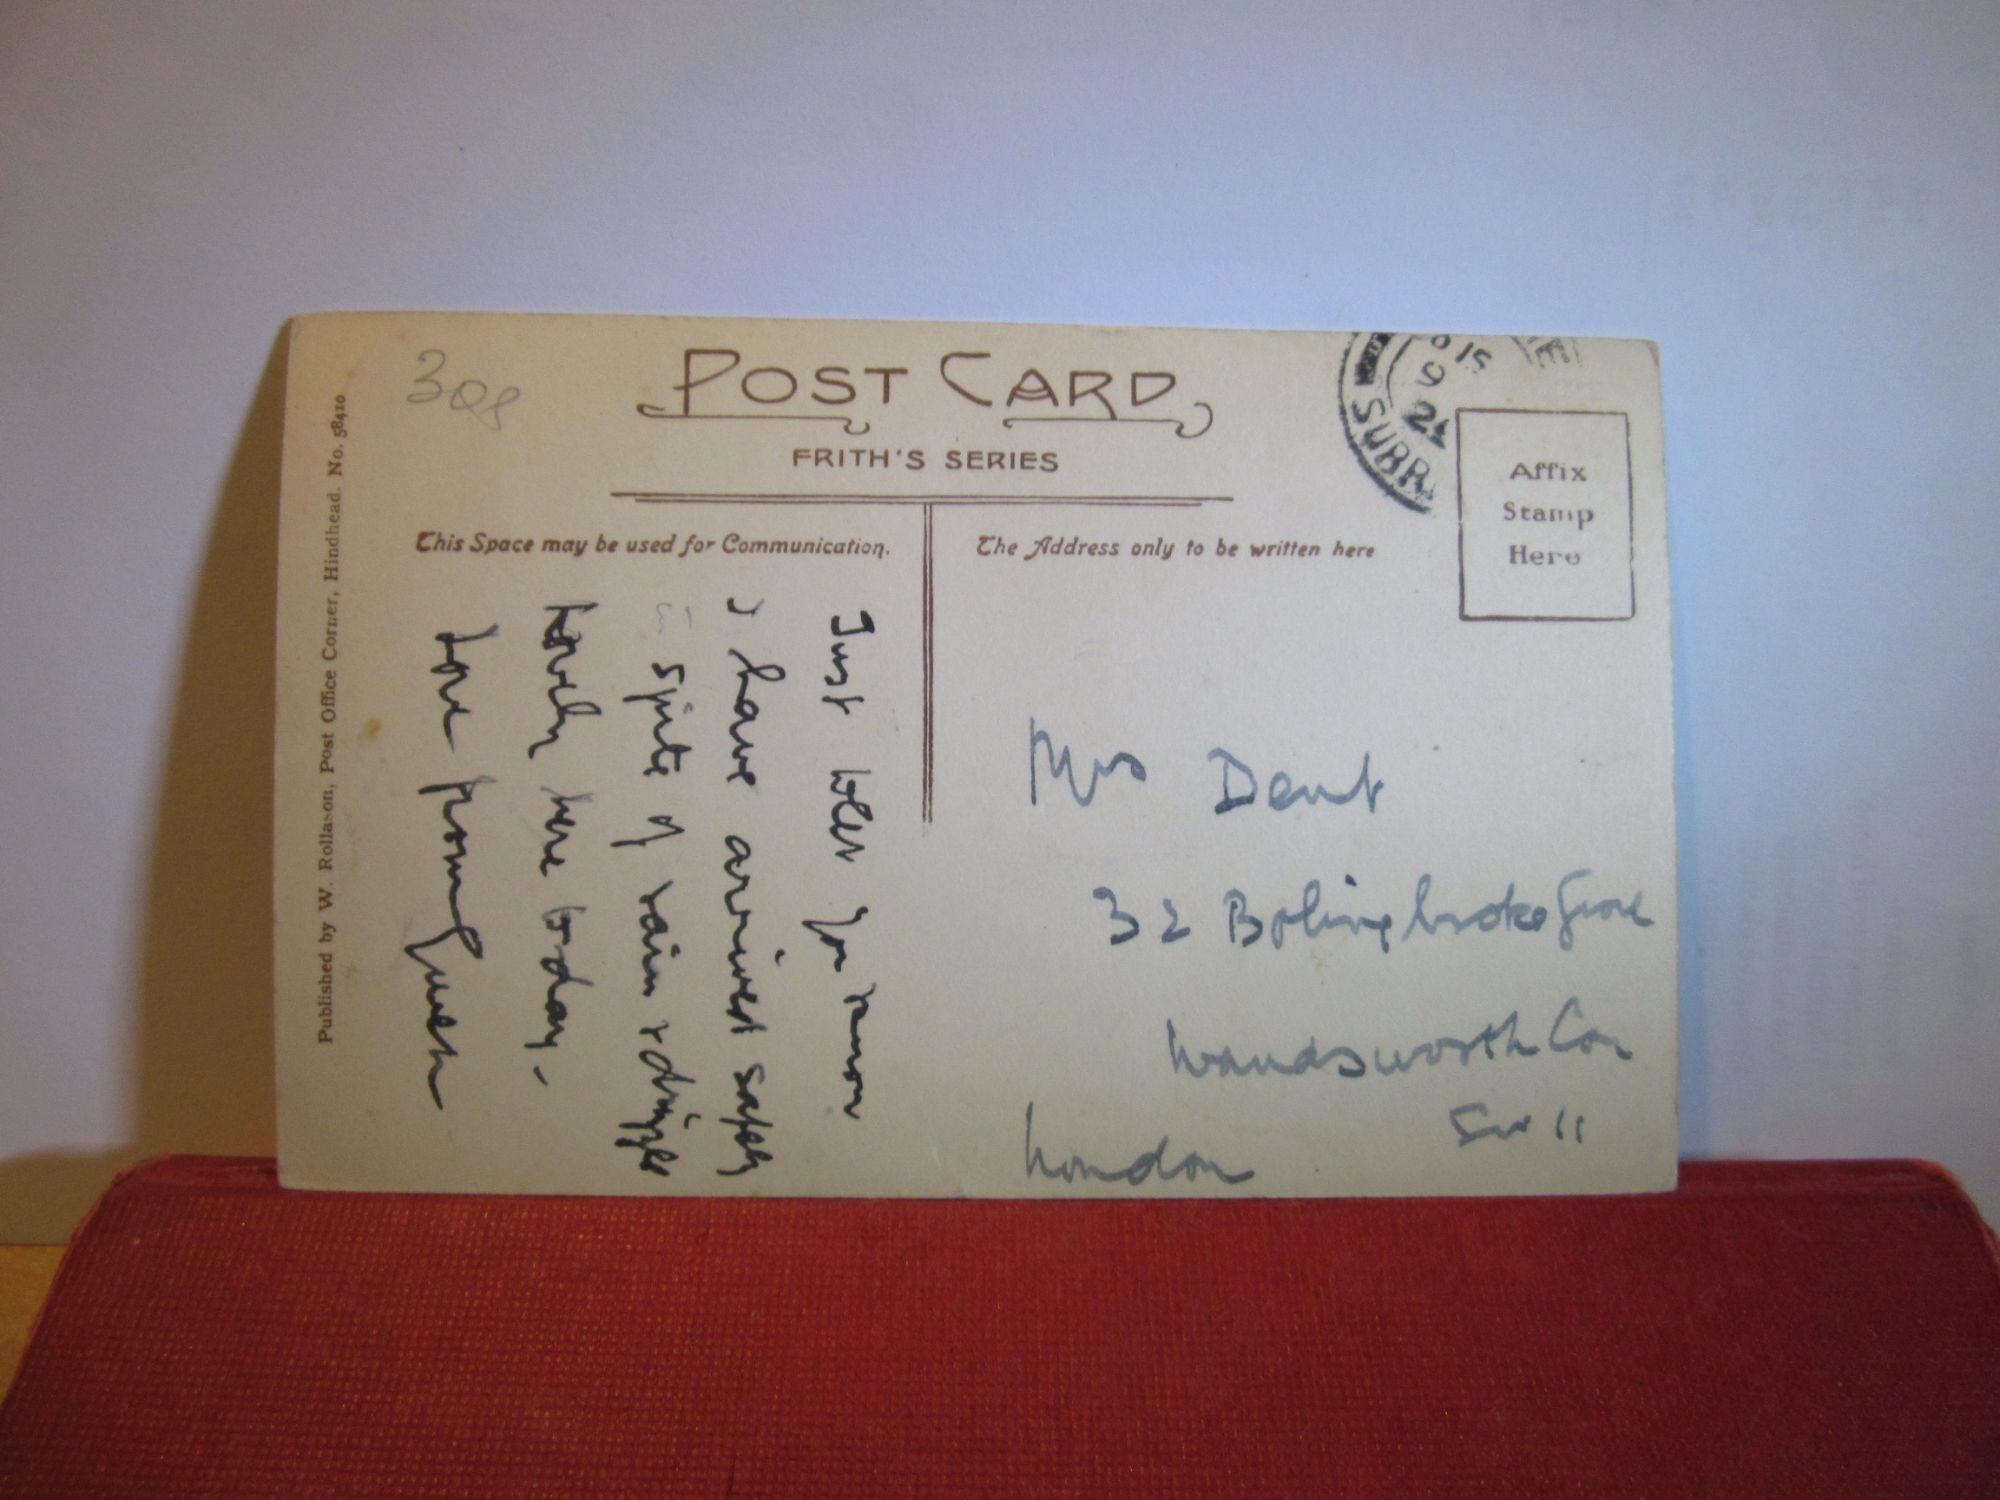 30p
POST CARD
FRITH'S SERIES
This Space may be used for Communication.
The Address only to be written here
Affix
Stamp
Here
SURR
15
9
Published by W. Rollason, Post Office Corner, Hindhead. No. 58410
Just to let you know
I have arrived safely
in spite of rain & drizzle
Lovely here today.-
Love from
Mrs Dent
32 Bolingbroke Grove
Wandsworth Com
SW 11
London